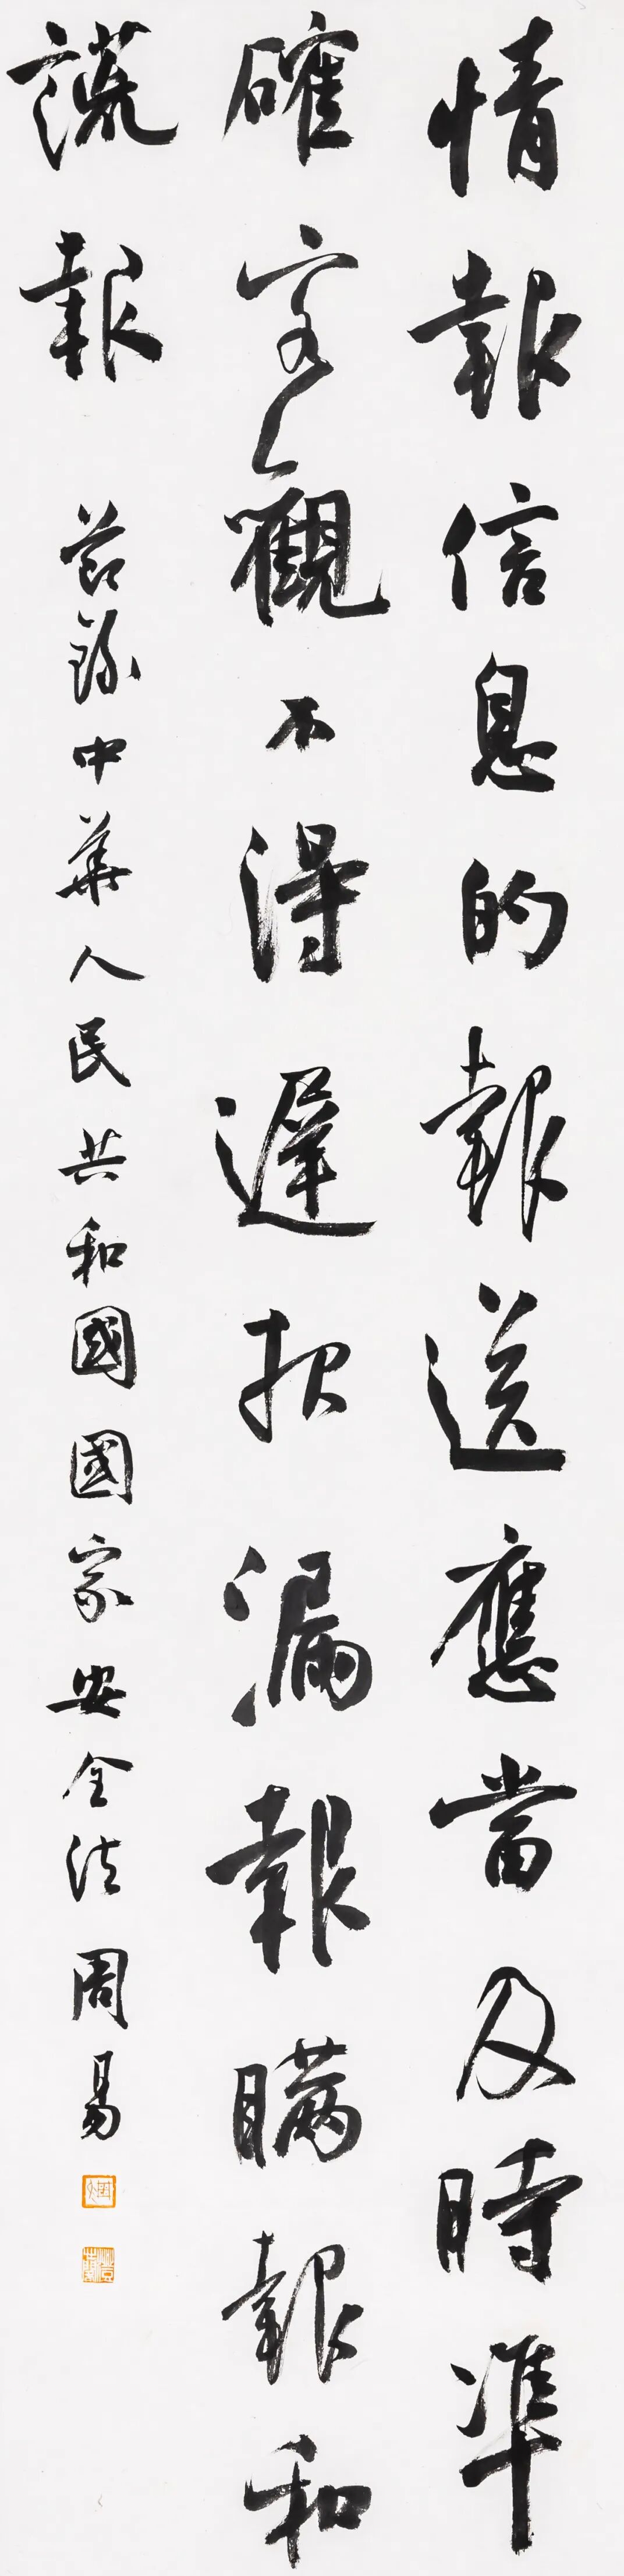 情報信息的報送應當及時準
確客觀不得遲报漏報瞞報和
謊報
節錄中華人民共和國國家安全法周易